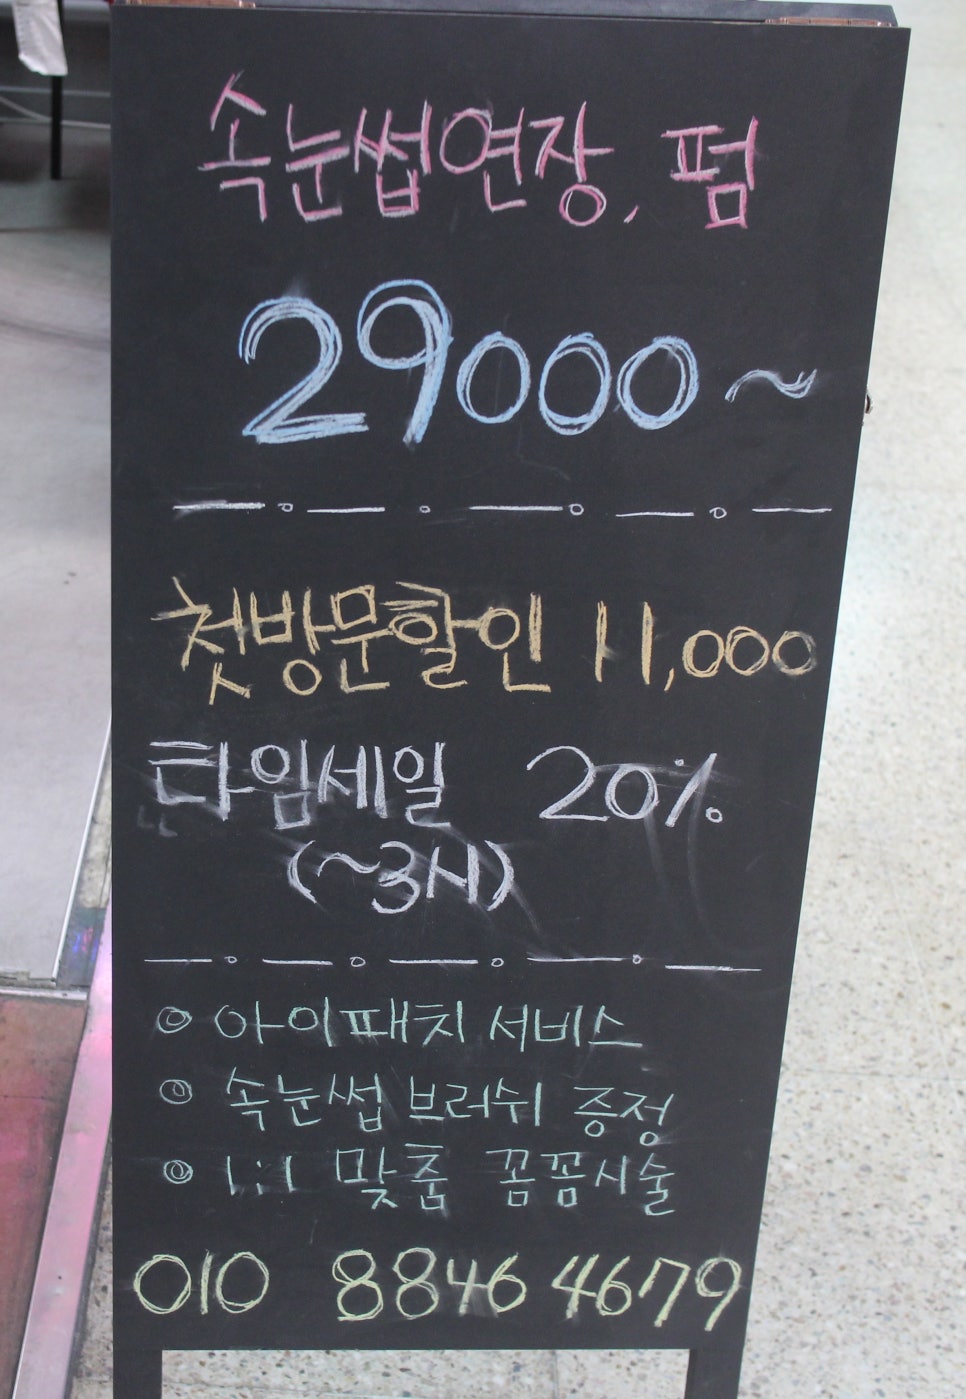 속눈썹연장, 펌
29000~
첫방문할인 11,000
타임세일 20%
(~3시)
◎ 아이패치 서비스
◎ 속눈썹 브러쉬 증정
◎ 1:1 맞춤 꼼꼼시술
010 8846 4679